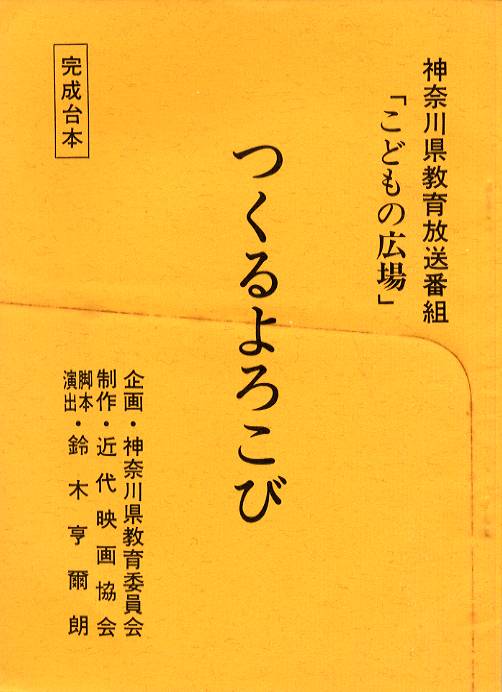 神奈川県教育放送番組
「こどもの広場」
つくるよろこび
完成台本
企画・神奈川県教育委員会
制作・近代映画協会
脚本
演出・鈴木亨爾朗